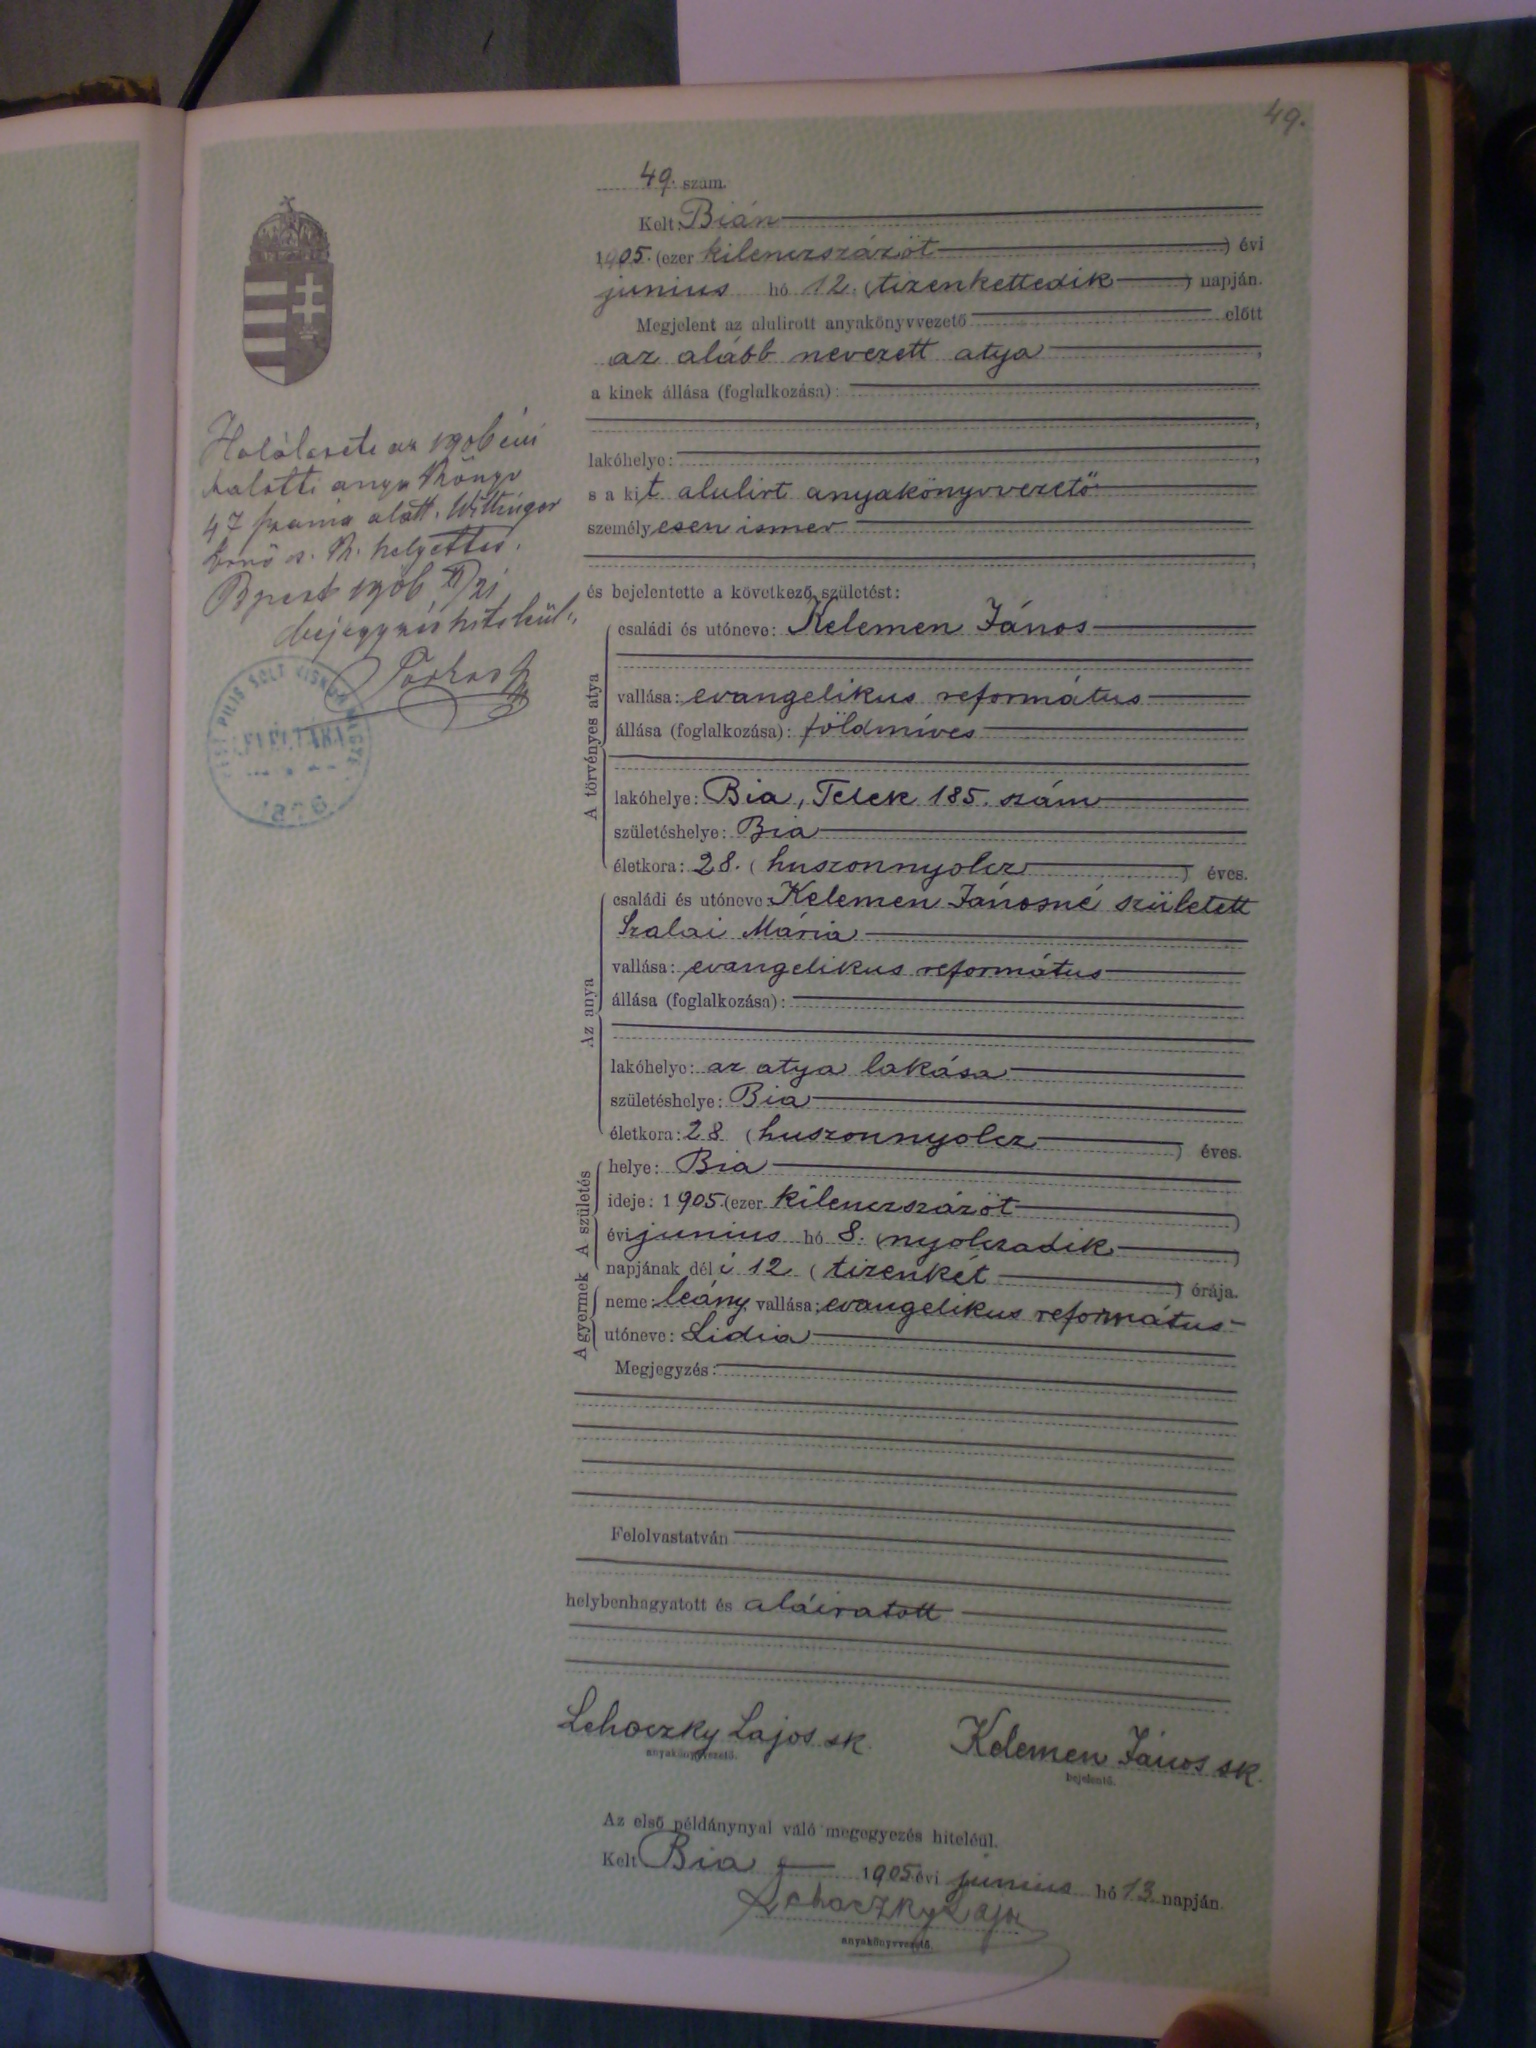 49.
49. szám.
Kelt: Bián
1905. (ezer kilenczszázöt) évi
junius hó 12. (tizenkettedik) napján.
Megjelent az alulirott anyakönyvvezető előtt
az alább nevezett atya,
a kinek állása (foglalkozása):
lakóhelye:
s a kit alulirt anyakönyvvezető
személyesen ismer
és bejelentette a következő születést:
A törvényes atya
családi és utóneve: Kelemen János
vallása: evangelikus református
állása (foglalkozása): földmíves
lakóhelye: Bia, Telek 185. szám
születéshelye: Bia
életkora: 28. (huszonnyolcz) éves.
Az anya
családi és utóneve: Kelemen Jánosné született
Szalai Mária
vallása: evangelikus református
állása (foglalkozása):
lakóhelye: az atya lakása
születéshelye: Bia
életkora: 28 (huszonnyolcz) éves.
A születés
helye: Bia
ideje: 1905. (ezer kilenczszázöt)
évi junius hó 8. (nyolczadik)
napjának déli 12 (tizenkét) órája.
A gyermek
neme: leány vallása: evangelikus református
utóneve: Lidia
Megjegyzés:
Felolvastatván
helybenhagyatott és aláiratott
Lehoczky Lajos sk.
anyakönyvvezető.
Kelemen János sk.
bejelentő.
Az első példánynyal való megegyezés hiteléül.
Kelt Bia 1905 évi junius hó 13 napján.
Lehoczky Lajos
anyakönyvvezető.
Halálesete az 1906 évi
halotti anya könyv
47 száma alatt. Wittinger
a. k. helyettes.
Bpest 1906
bejegyzés hiteléül:
PILIS SOLT KISKUN